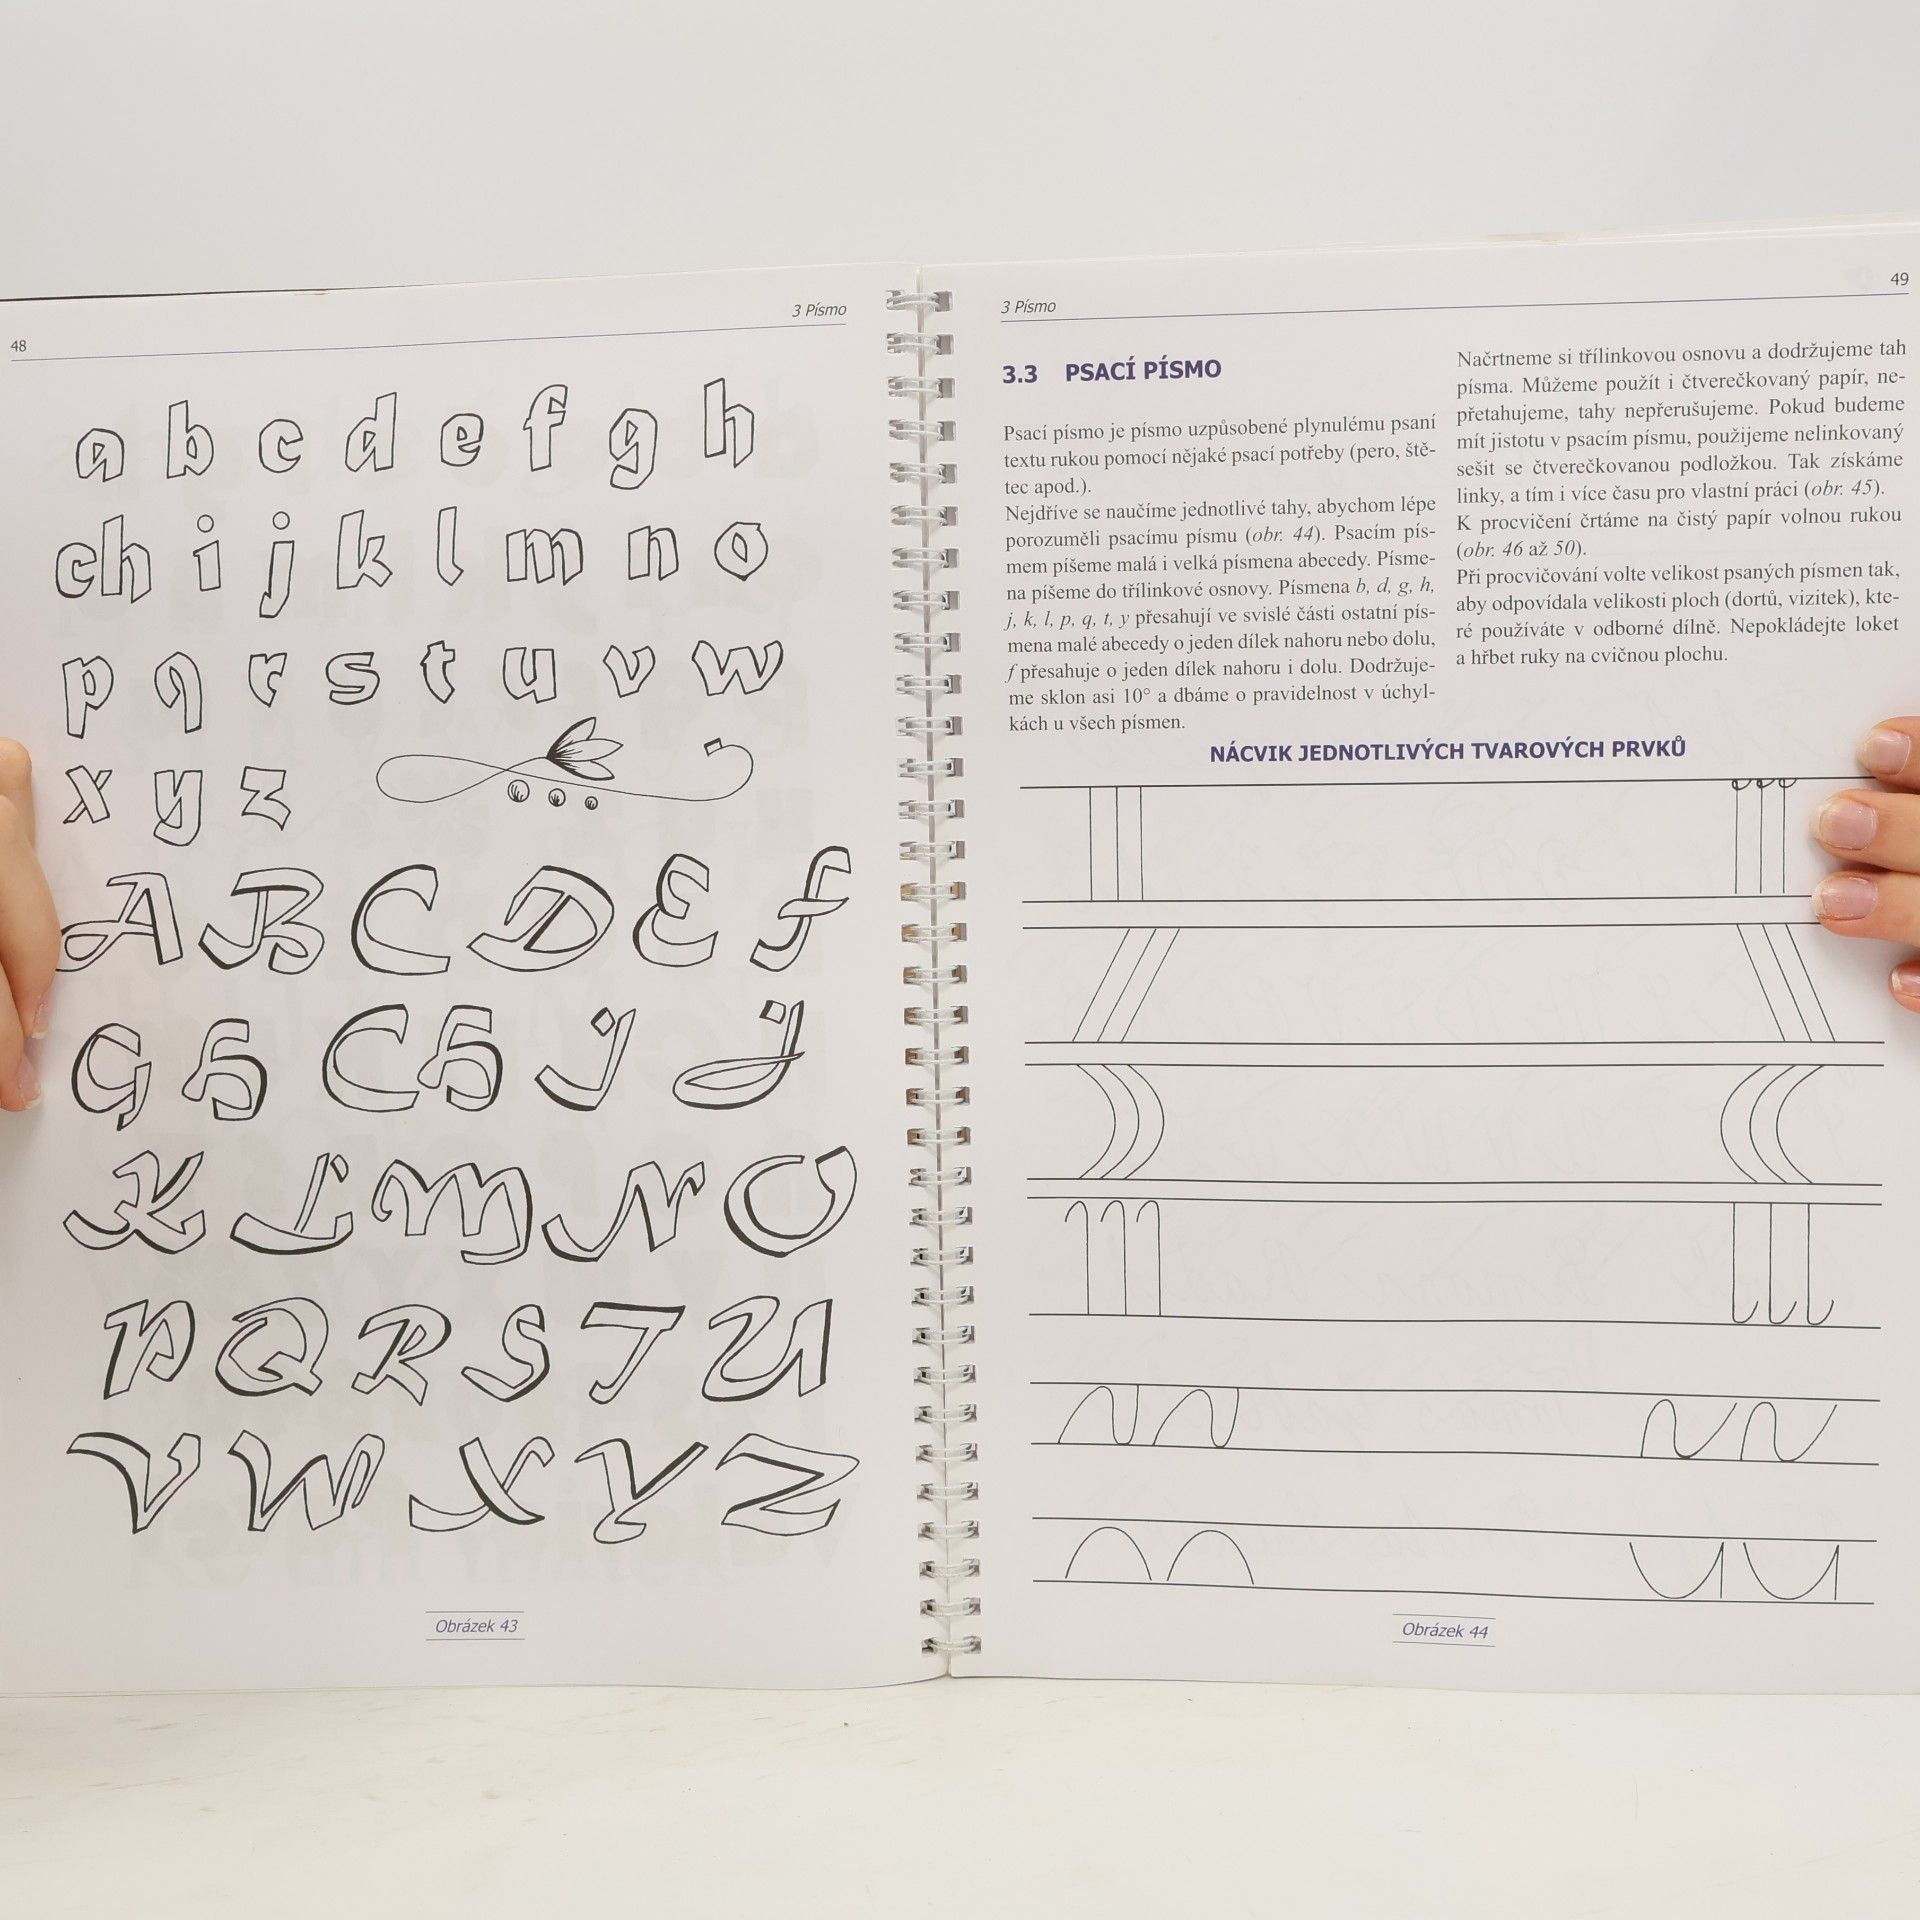 48
3 Písmo
a b c d e f g h
ch i j k l m n o
p q r s t u v w
x y z
A B C D E F
G H CH I J
K L M N O
P Q R S T U
V W X Y Z
Obrázek 43
3 Písmo
49
3.3 PSACÍ PÍSMO
Psací písmo je písmo uzpůsobené plynulému psaní
textu rukou pomocí nějaké psací potřeby (pero, ště-
tec apod.).
Nejdříve se naučíme jednotlivé tahy, abychom lépe
porozuměli psacímu písmu (obr. 44). Psacím pís-
mem píšeme malá i velká písmena abecedy. Písme-
na píšeme do třílinkové osnovy. Písmena b, d, g, h,
j, k, l, p, q, t, y přesahují ve svislé části ostatní pís-
mena malé abecedy o jeden dílek nahoru nebo dolu,
f přesahuje o jeden dílek nahoru i dolu. Dodržuje-
me sklon asi 10° a dbáme o pravidelnost v úchyl-
kách u všech písmen.
Načrtneme si třílinkovou osnovu a dodržujeme tah
písma. Můžeme použít i čtverečkovaný papír, ne-
přetahujeme, tahy nepřerušujeme. Pokud budeme
mít jistotu v psacím písmu, použijeme nelinkovaný
sešit se čtverečkovanou podložkou. Tak získáme
linky, a tím i více času pro vlastní práci (obr. 45).
K procvičení črtáme na čistý papír volnou rukou
(obr. 46 až 50).
Při procvičování volte velikost psaných písmen tak,
aby odpovídala velikosti ploch (dortů, vizitek), kte-
ré používáte v odborné dílně. Nepokládejte loket
a hřbet ruky na cvičnou plochu.
NÁCVIK JEDNOTLIVÝCH TVAROVÝCH PRVKŮ
Obrázek 44